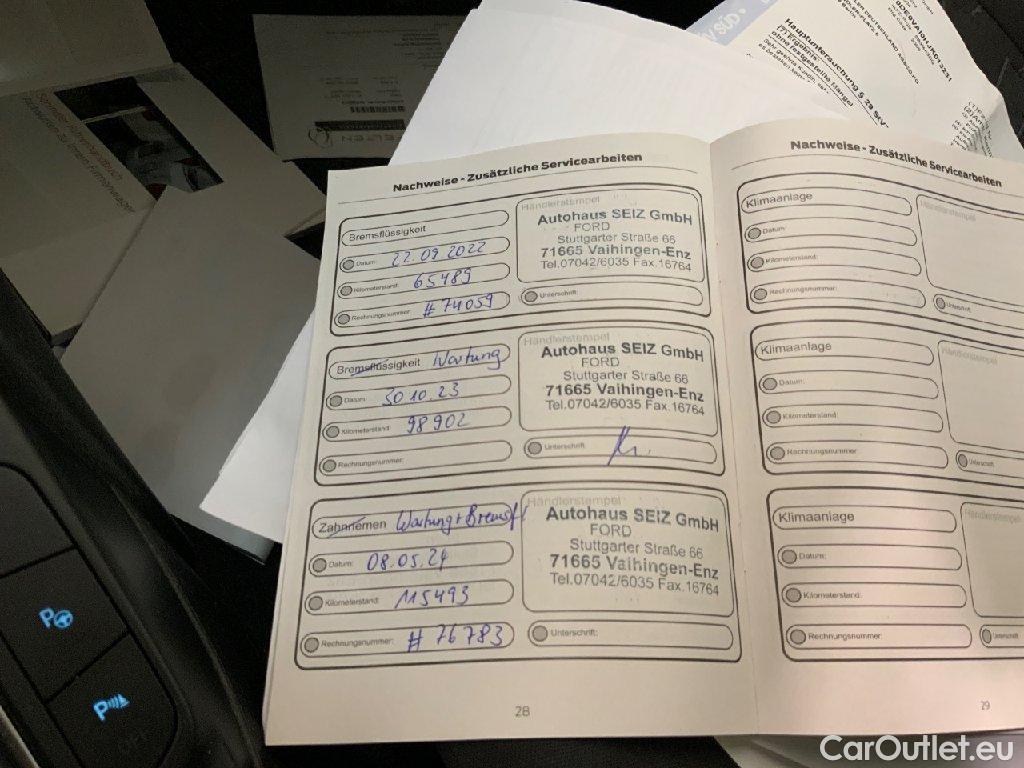 Nachweise - Zusätzliche Servicearbeiten
Bremsflüssigkeit
Datum: 22.09.2022
Kilometerstand: 65489
Rechnungsnummer: #74059
Händlerstempel
Autohaus SEIZ GmbH
FORD
Stuttgarter Straße 66
71665 Vaihingen-Enz
Tel.07042/6035 Fax.16764
Unterschrift:
Bremsflüssigkeit Wartung
Datum: 30.10.23
Kilometerstand: 98902
Rechnungsnummer:
Händlerstempel
Autohaus SEIZ GmbH
FORD
Stuttgarter Straße 66
71665 Vaihingen-Enz
Tel.07042/6035 Fax.16764
Unterschrift:
Zahnriemen Wartung+Bremsfl
Datum: 08.05.24
Kilometerstand: 115493
Rechnungsnummer: #76783
Händlerstempel
Autohaus SEIZ GmbH
FORD
Stuttgarter Straße 66
71665 Vaihingen-Enz
Tel.07042/6035 Fax.16764
Unterschrift:
28
Nachweise - Zusätzliche Servicearbeiten
Klimaanlage
Datum:
Kilometerstand:
Rechnungsnummer:
Händlerstempel
Unterschrift:
Klimaanlage
Datum:
Kilometerstand:
Rechnungsnummer:
Händlerstempel
Unterschrift:
Klimaanlage
Datum:
Kilometerstand:
Rechnungsnummer:
Händlerstempel
Unterschrift:
29
SÜD
Hauptuntersuchung § 29 StV
ohne festgestellte Mängel
P
P
OFF
CarOutlet.eu